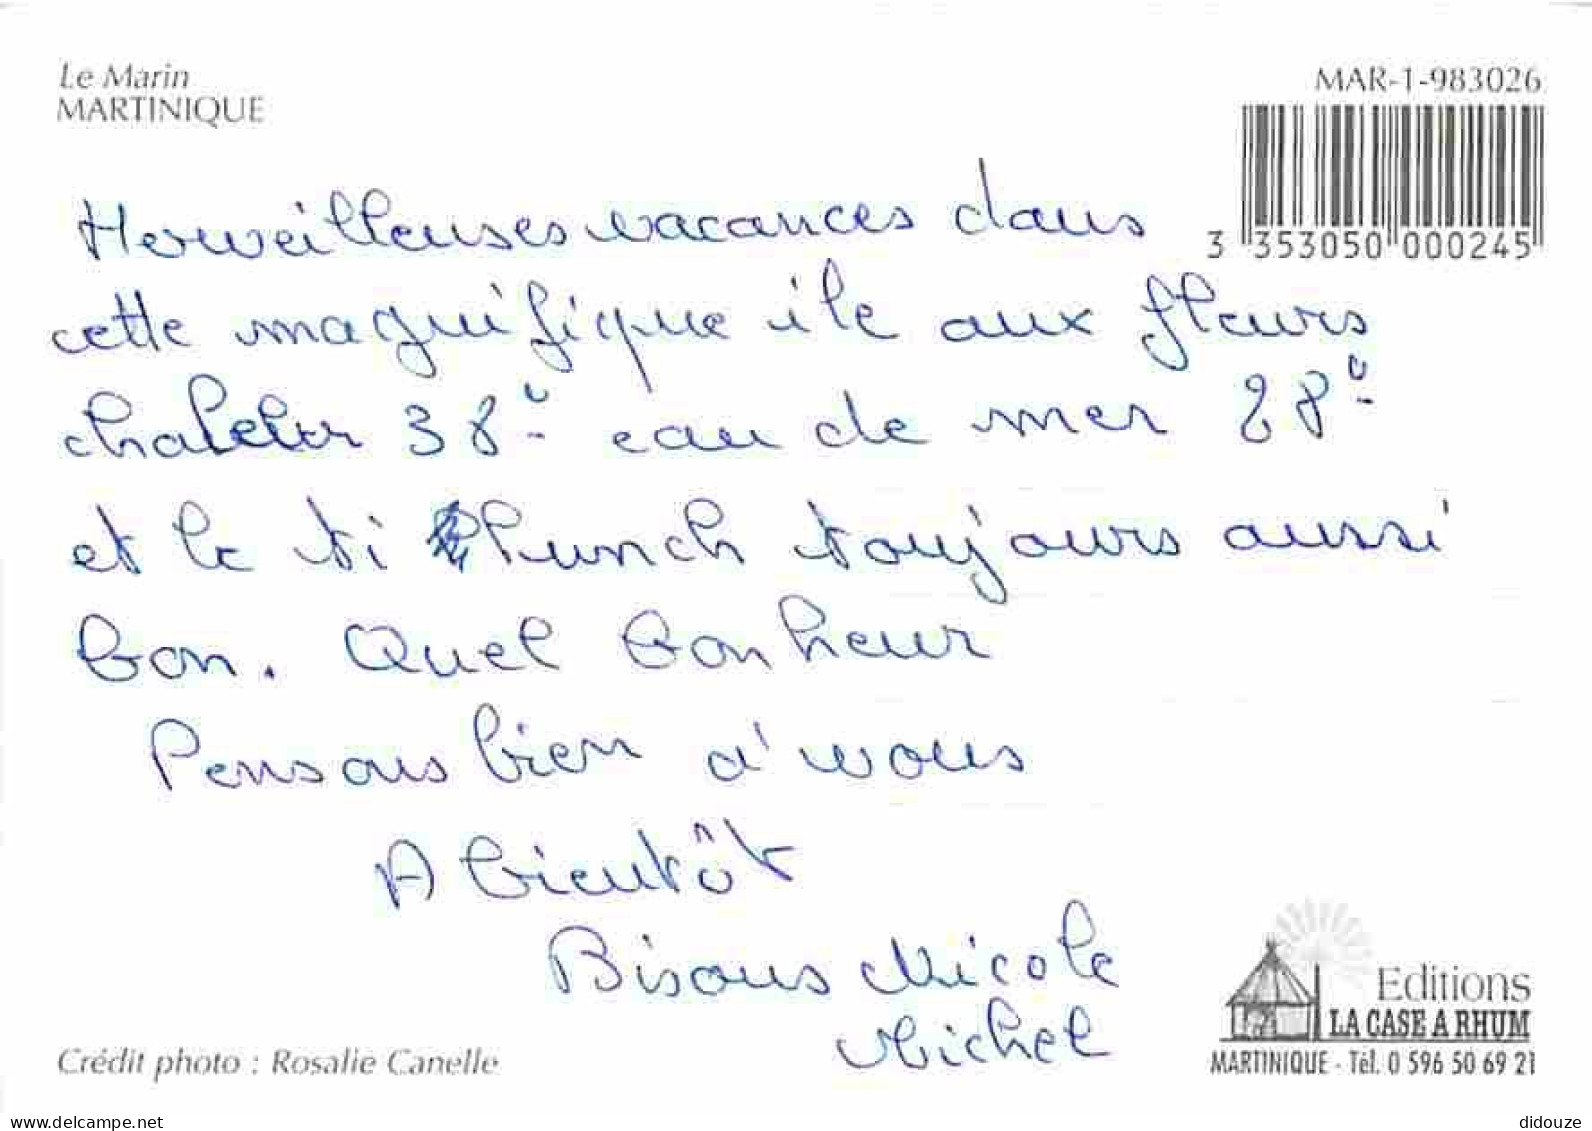 Le Marin
MARTINIQUE
MAR-1-983026
3 353050 000245
Merveilleuses vacances dans
cette magnifique île aux fleurs
chaleur 38° eau de mer 28°
et le ti Punch toujours aussi
bon. Quel bonheur
Pensons bien à vous
A bientôt
Bisous Nicole
Michel
Editions
LA CASE A RHUM
MARTINIQUE - Tél. 0 596 50 69 21
Crédit photo : Rosalie Canelle
www.delcampe.net
didouze